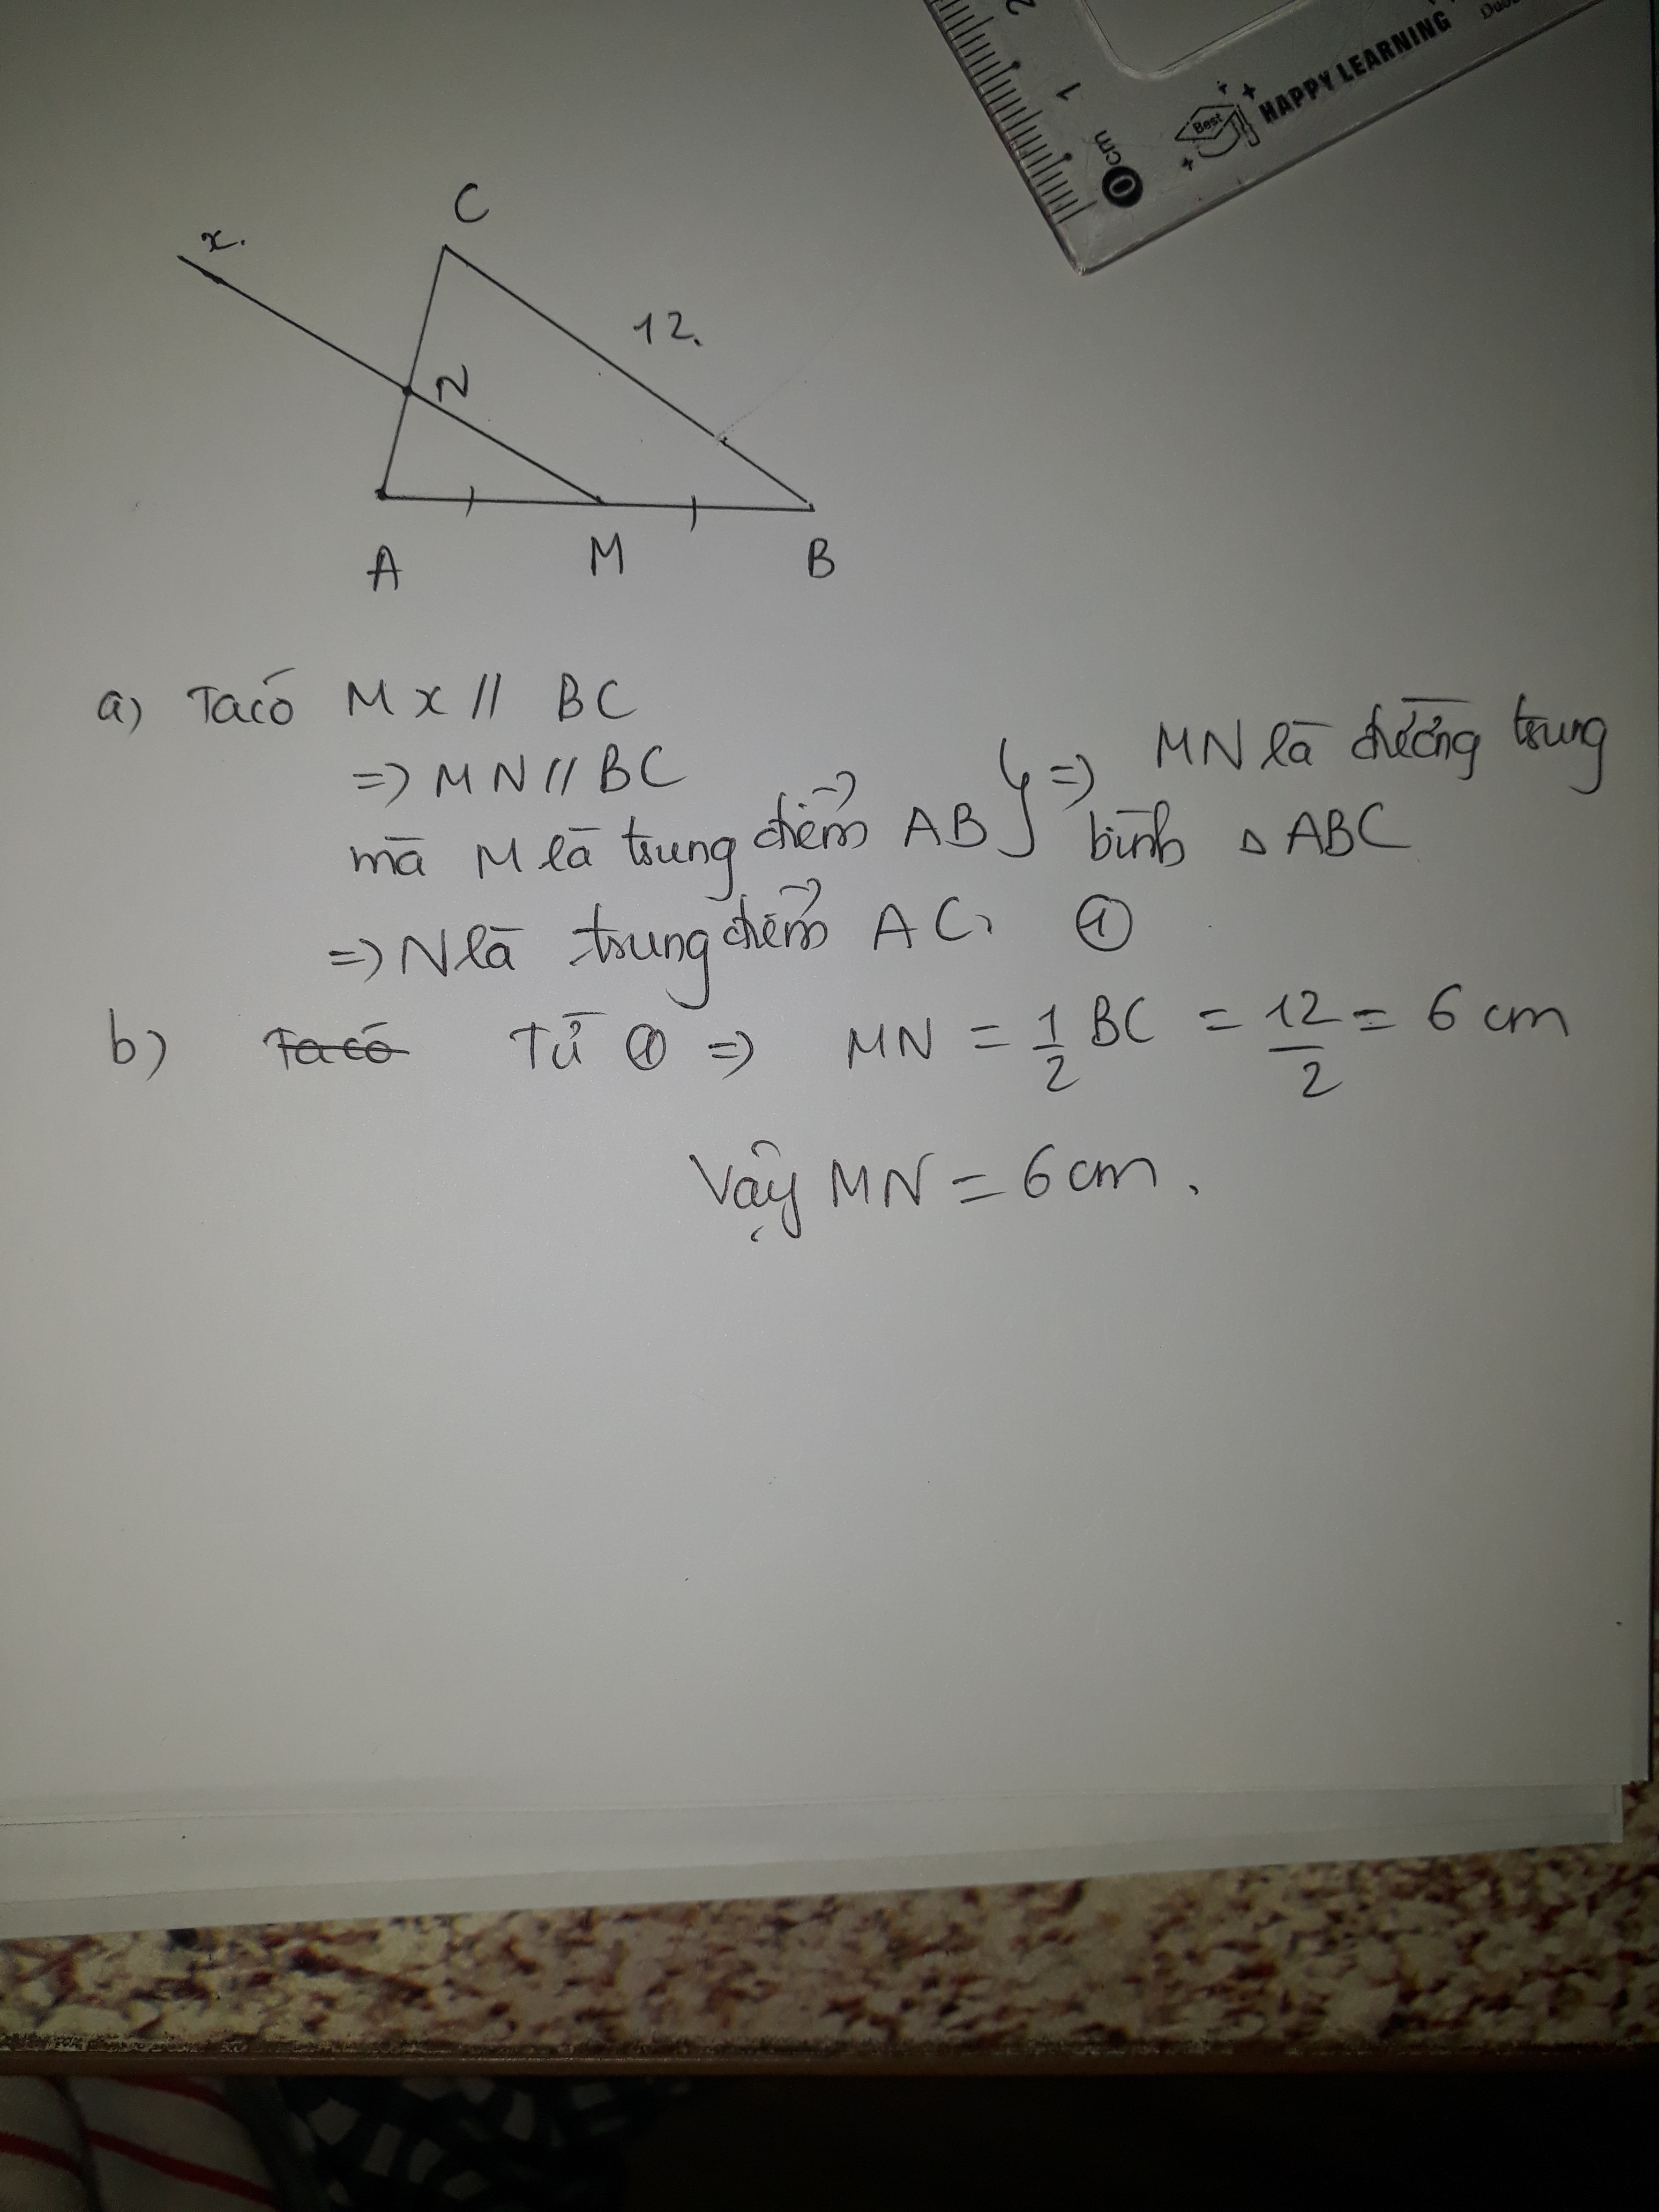 2
1
0 cm
Best
HAPPY LEARNING
C
x.
12.
N
A M B
a) Ta có Mx // BC
=> MN // BC
mà M là trung điểm AB } => MN là đường trung
bình Δ ABC
=> N là trung điểm AC. ①
b) Ta có Từ ① => MN = 1/2 BC = 12/2 = 6 cm
Vậy MN = 6 cm.